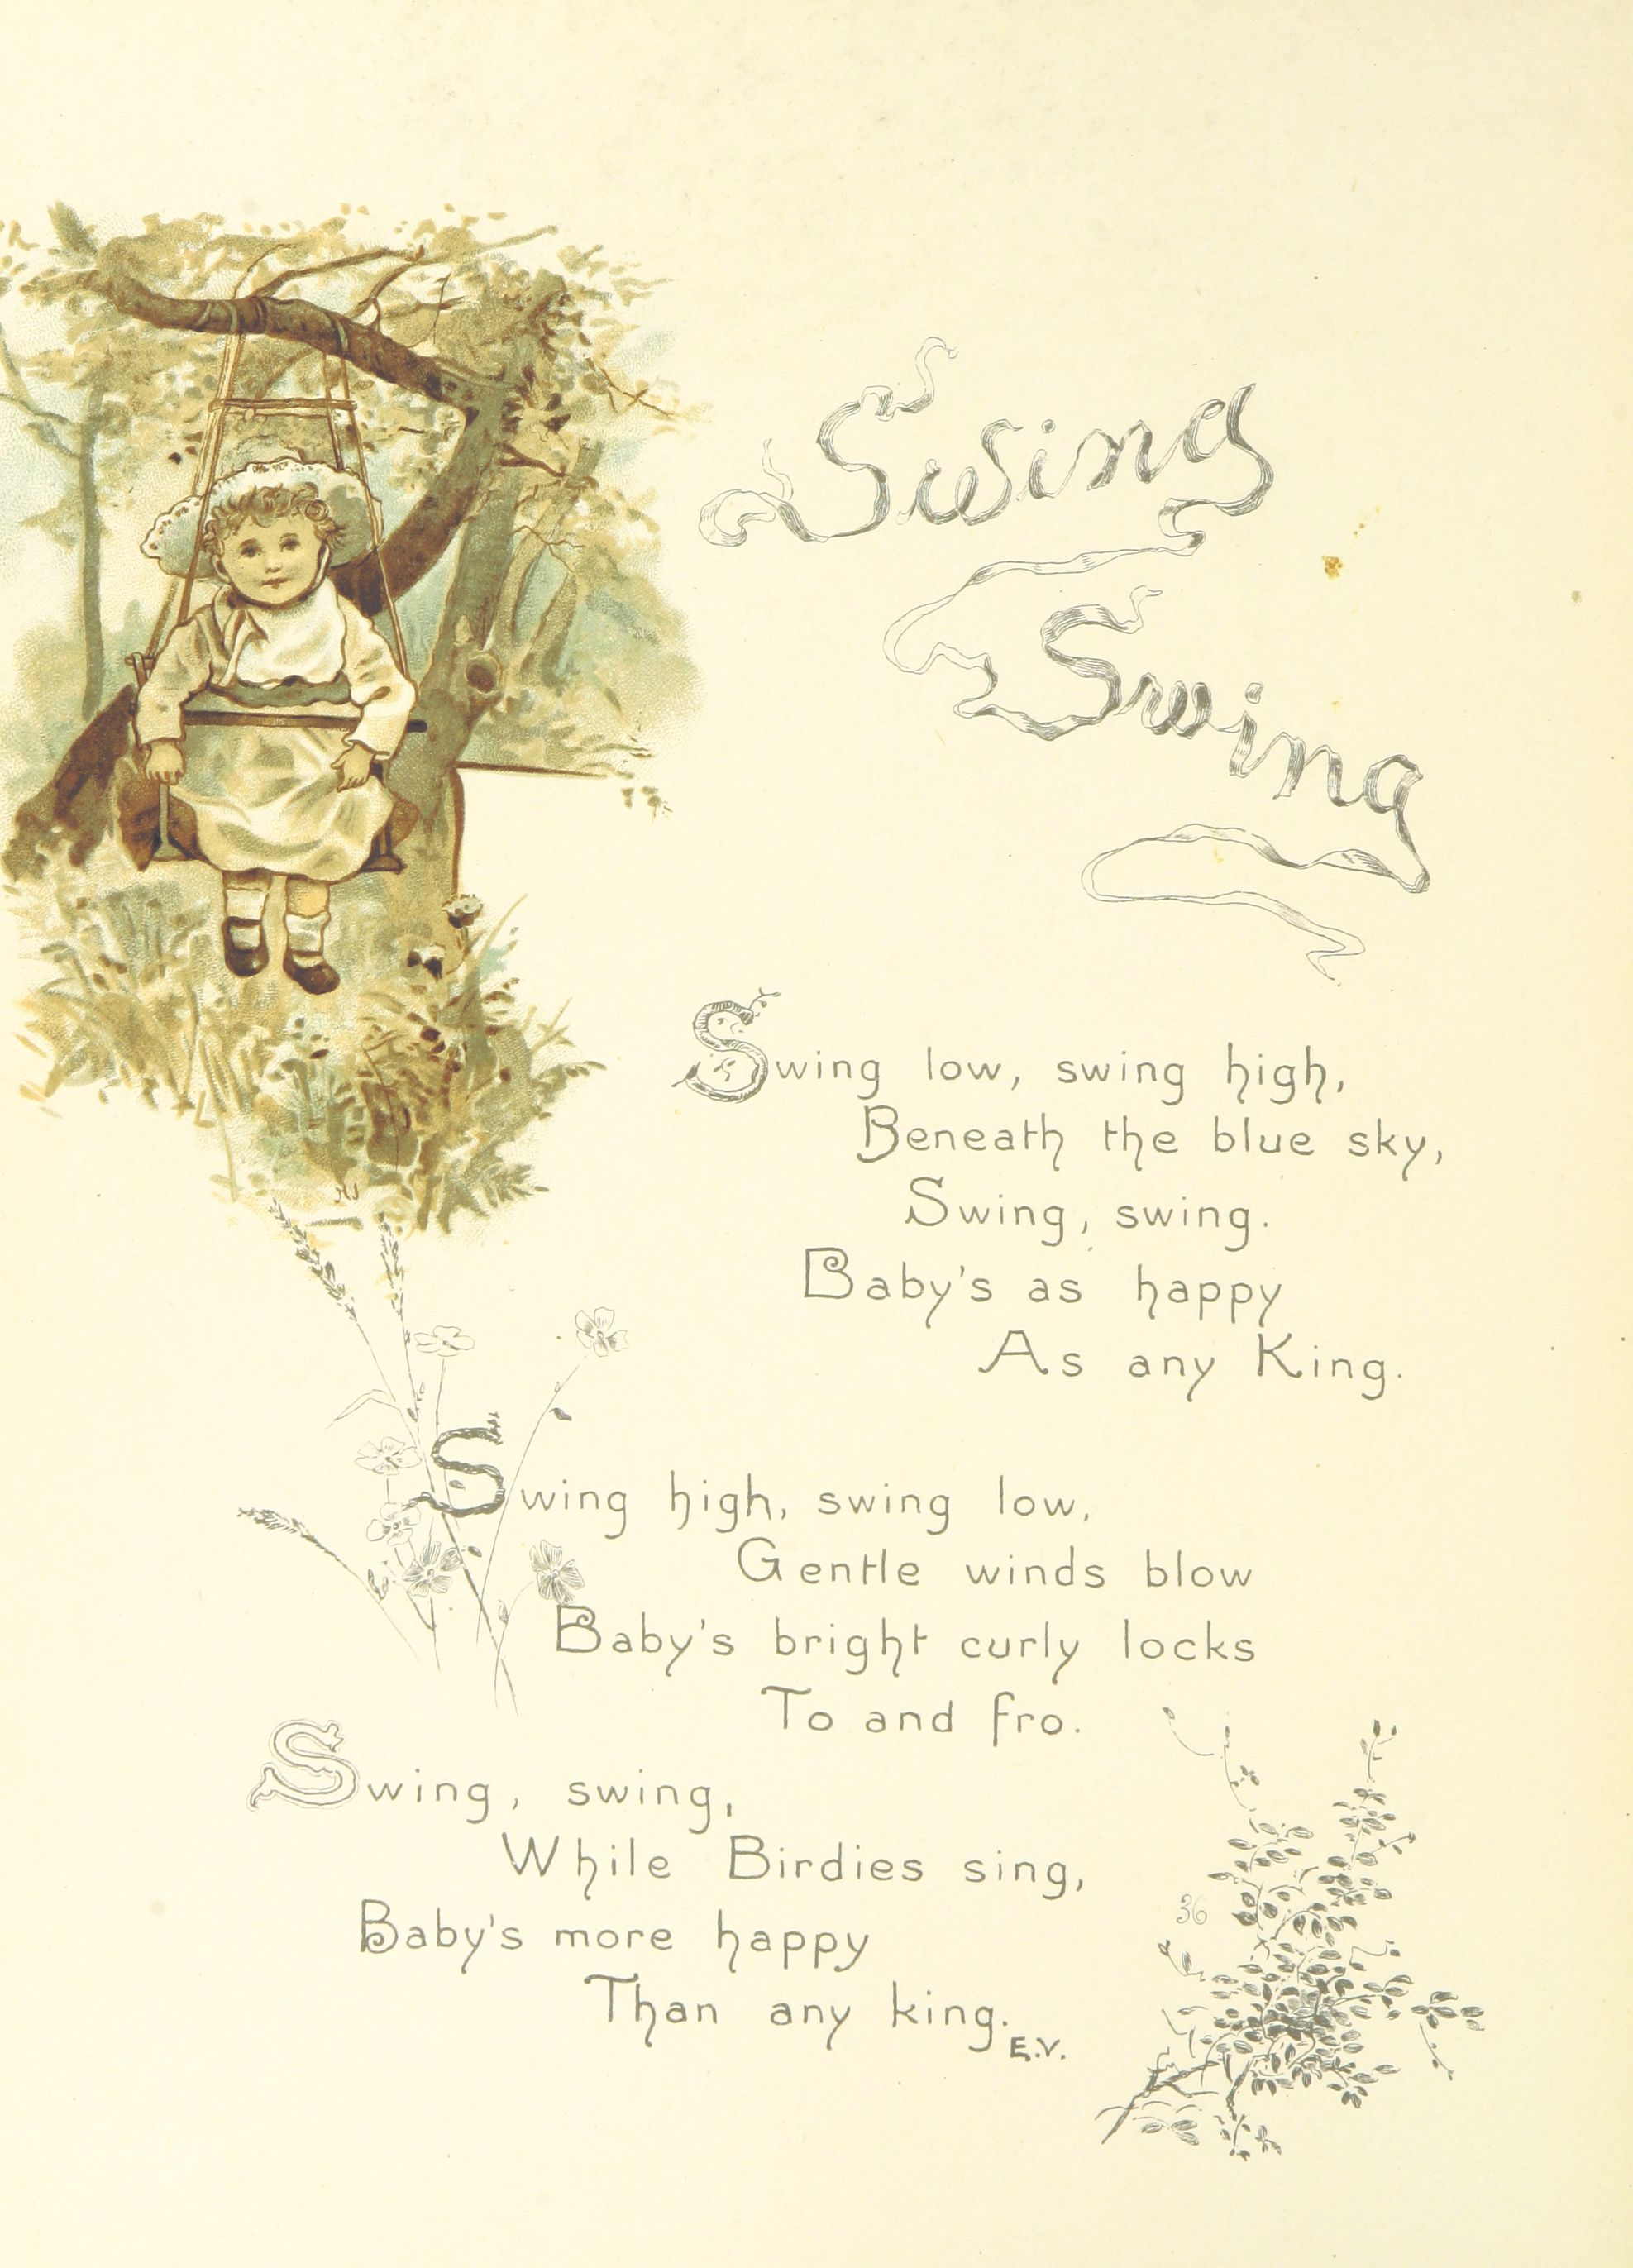 Swing
Swing
Swing low, swing high,
Beneath the blue sky,
Swing, swing.
Baby's as happy
As any King.
Swing high, swing low,
Gentle winds blow
Baby's bright curly locks
To and fro.
Swing, swing,
While Birdies sing,
Baby's more happy
Than any king.
E.V.
36